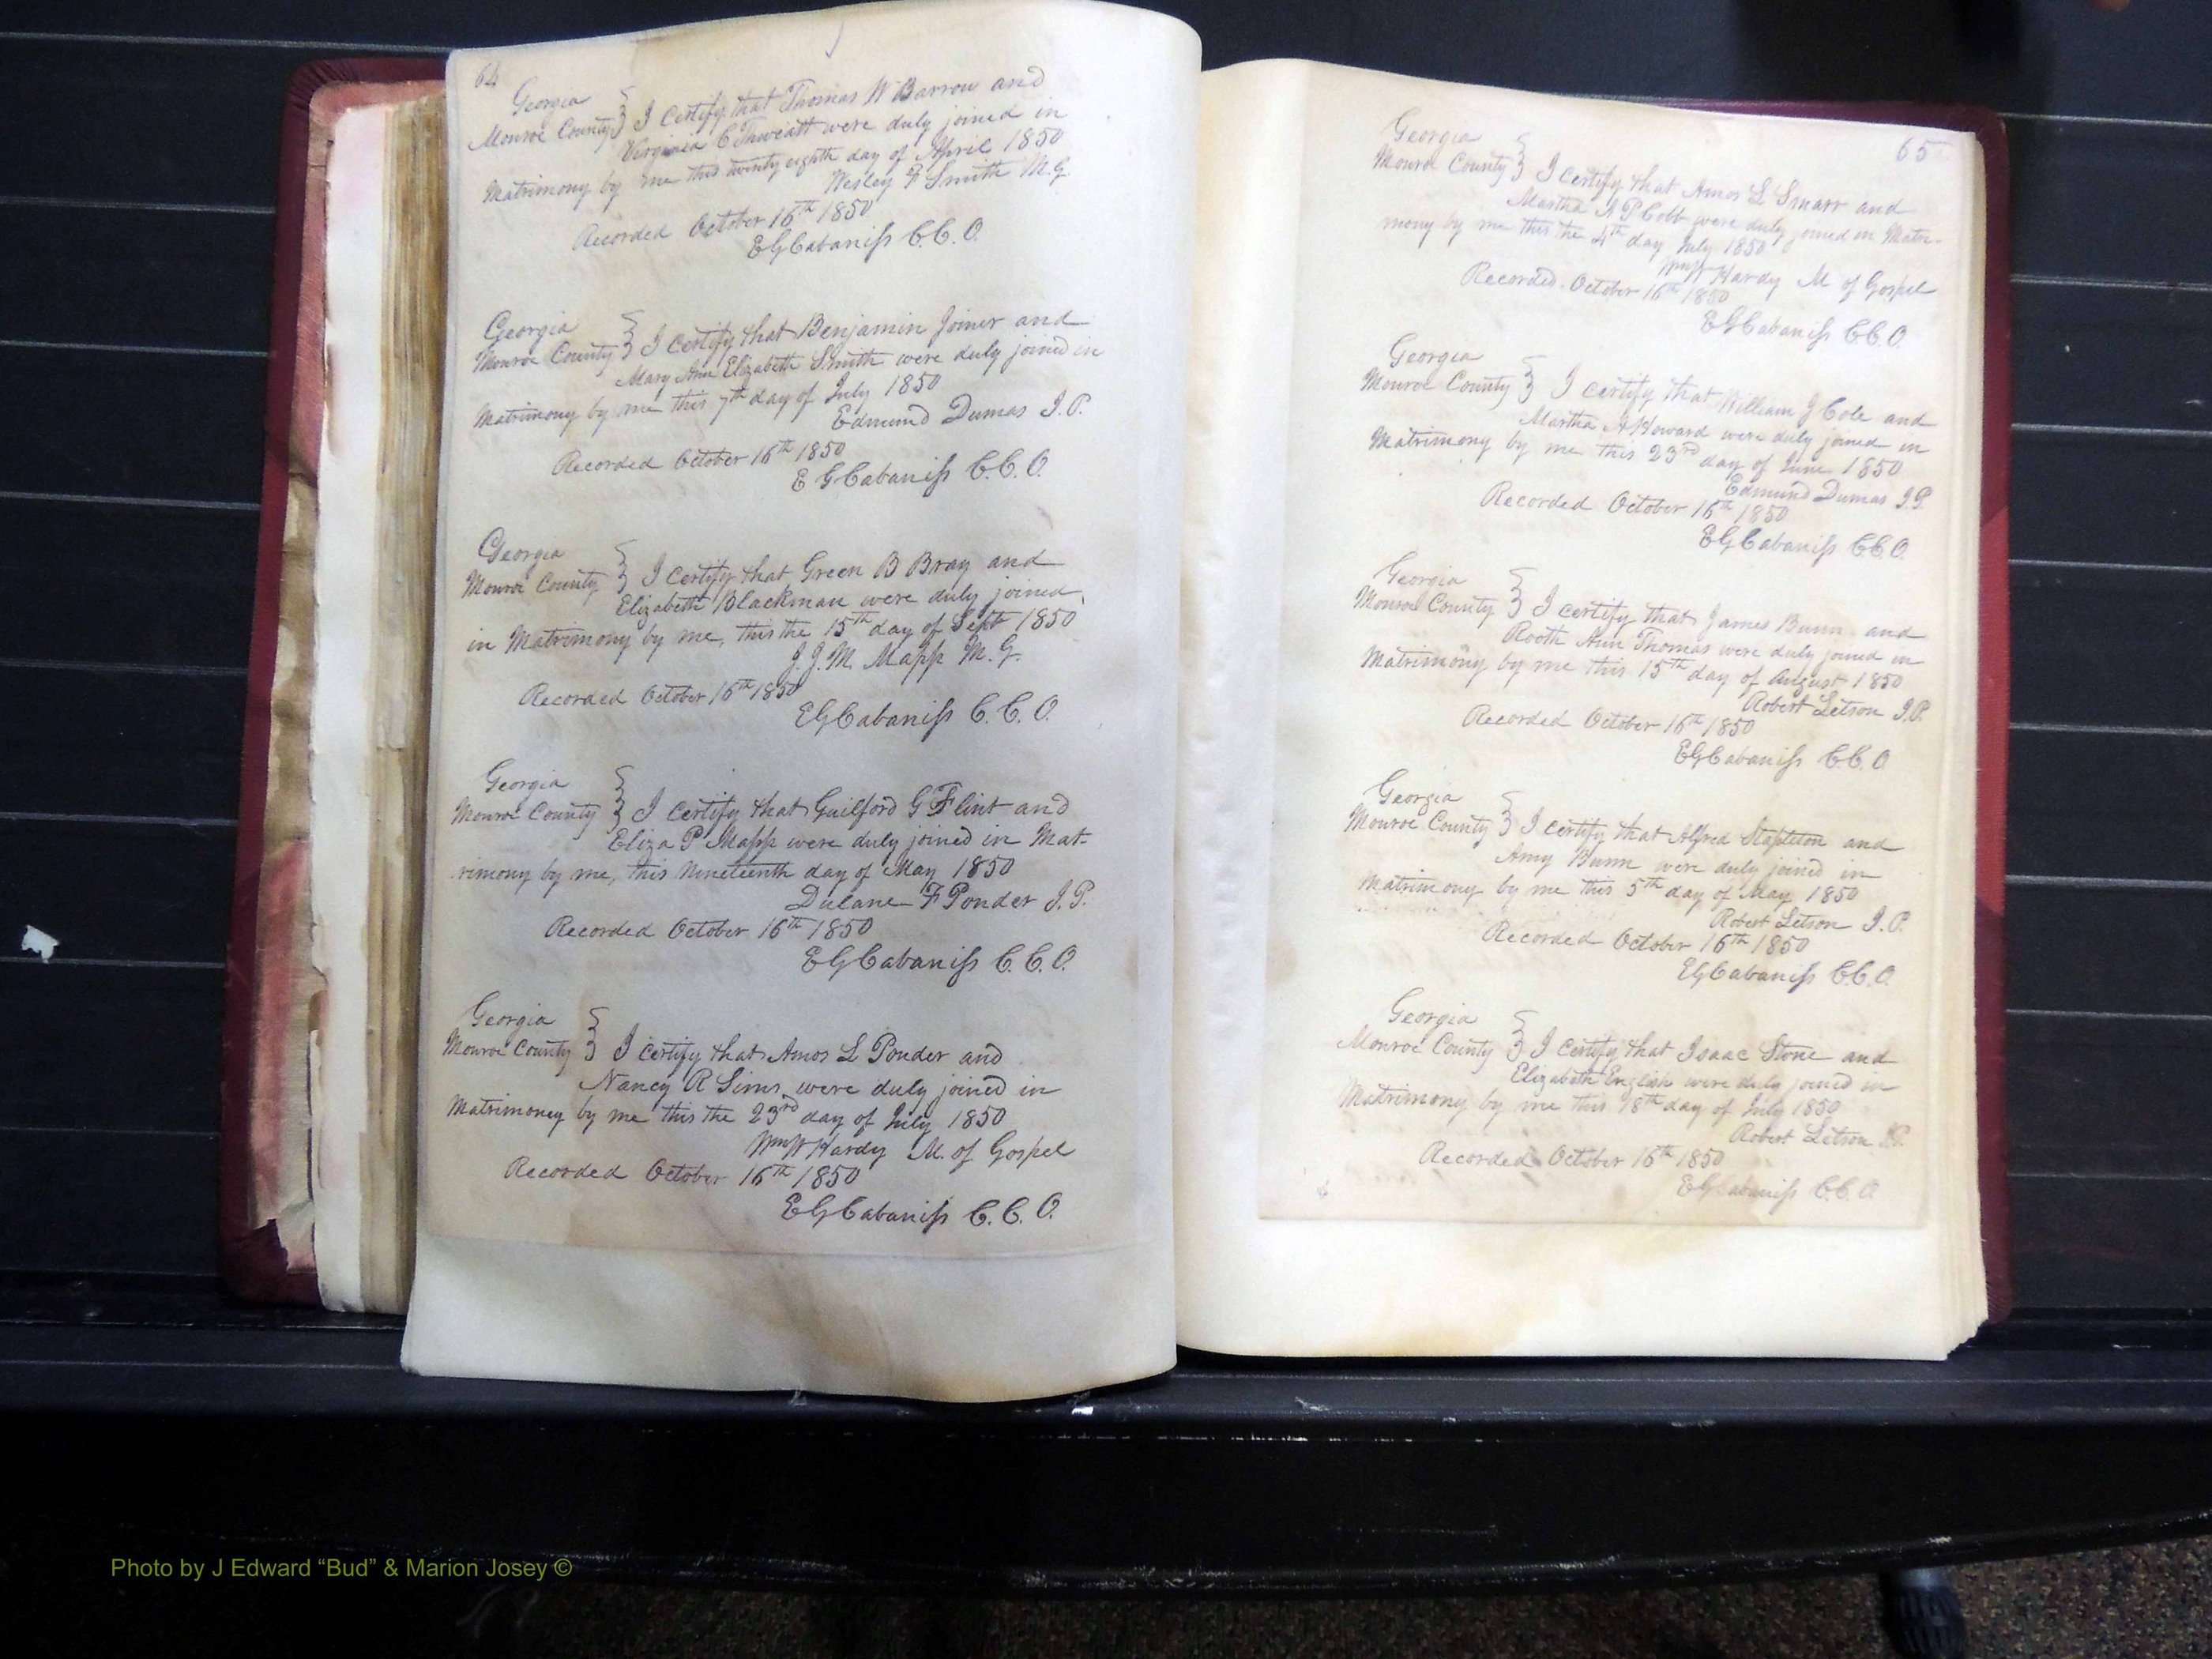 64
Georgia
Monroe County } I Certify that Thomas W Barrow and
Virginia C Thweatt were duly joined in
Matrimony by me this twenty eighth day of April 1850
Wesley F Smith M.G.
Recorded October 16th 1850
E G Cabaniss C.C.O.
Georgia
Monroe County } I Certify that Benjamin Joiner and
Mary Ann Elizabeth Smith were duly joined in
Matrimony by me this 7th day of July 1850
Edmund Dumas J.P.
Recorded October 16th 1850
E G Cabaniss C.C.O.
Georgia
Monroe County } I Certify that Green B Bray and
Elizabeth Blackman were duly joined
in Matrimony by me, this the 15th day of Sept 1850
J.J.M. Mapp M.G.
Recorded October 16th 1850
E G Cabaniss C.C.O.
Georgia
Monroe County } I Certify that Guilford G Flint and
Eliza P Mapp were duly joined in Mat-
rimony by me, this Nineteenth day of May 1850
Dulane F Ponder J.P.
Recorded October 16th 1850
E G Cabaniss C.C.O.
Georgia
Monroe County } I Certify that Amos L Ponder and
Nancy R Sims were duly joined in
Matrimoney by me this the 23rd day of July 1850
Wm W Hardy M. of Gospel
Recorded October 16th 1850
E G Cabaniss C.C.O.
65
Georgia
Monroe County } I Certify that Amos L Smarr and
Martha A P Cobb were duly joined in Matri-
mony by me this the 4th day July 1850
Wm W Hardy M of Gospel
Recorded October 16th 1850
E G Cabaniss C.C.O.
Georgia
Monroe County } I Certify that William J Cole and
Martha A Howard were duly joined in
Matrimony by me this 23rd day of June 1850
Edmund Dumas J.P.
Recorded October 16th 1850
E G Cabaniss C.C.O.
Georgia
Monroe County } I Certify that James Bunn and
Rooth Ann Thomas were duly joined in
Matrimony by me this 15th day of August 1850
Robert Letson J.P.
Recorded October 16th 1850
E G Cabaniss C.C.O
Georgia
Monroe County } I Certify that Alfred Stapleton and
Amy Bunn were duly joined in
Matrimony by me this 5th day of May 1850
Robert Letson J.P.
Recorded October 16th 1850
E G Cabaniss C.C.O.
Georgia
Monroe County } I Certify that Isaac Stone and
Elizabeth English were duly joined in
Matrimony by me this 18th day of July 1850
Robert Letson J.P.
Recorded October 16th 1850
E G Cabaniss C.C.O.
Photo by J Edward “Bud” & Marion Josey ©